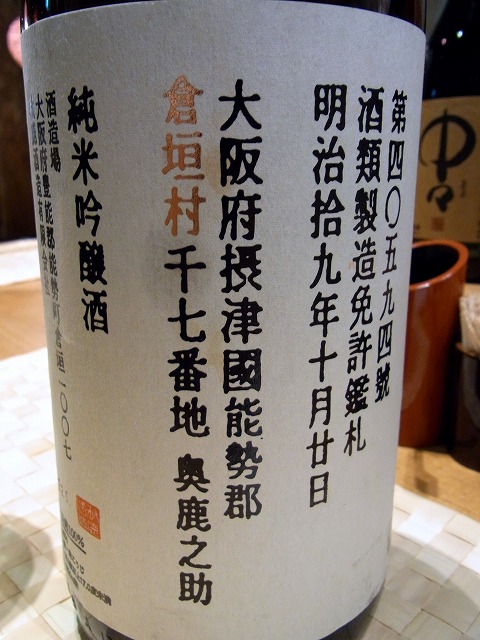 第四〇五九四號
酒類製造免許鑑札
明治拾九年十月廿日
大阪府摂津國能勢郡
倉垣村千七番地 奥鹿之助
純米吟醸酒
酒造場
大阪府豊能郡能勢町倉垣一〇〇七